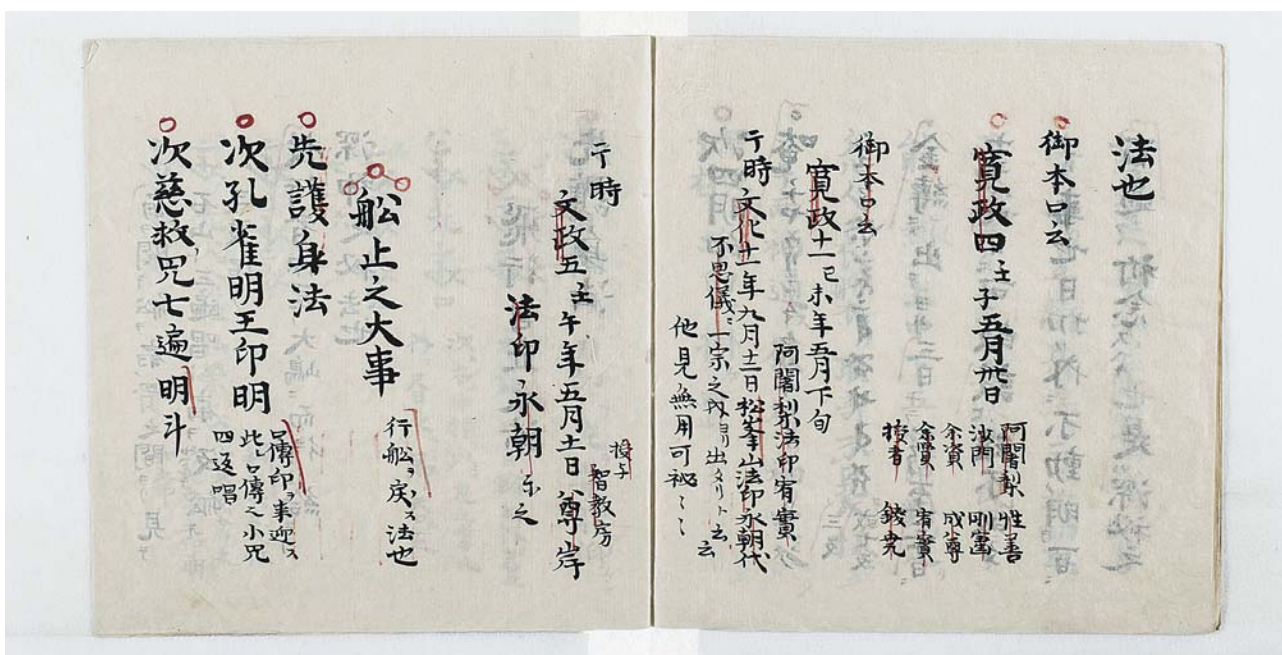 法也
御本口云
寛政四壬子五月卅日
阿闍梨 性善
沙門 剛富
余資 成尊
余賢 宥實
授者
御本口云
寛政十一己未年五月下旬
阿闍梨法印宥實
于時文化十一年九月十二日松峯山法印永朝代
不思儀ニ一宗之内ヨリ出タリト云云
他見無用可秘〻〻
于時
文政五壬午年五月十一日尊岸
授与 智教房
法印永朝示之
舩止之大事
行舩ヲ戻ス法也
先護身法
次孔雀明王印明
口傳印ヲ来迎ス
此口傳之小咒
四返唱
次慈救咒七遍 明斗